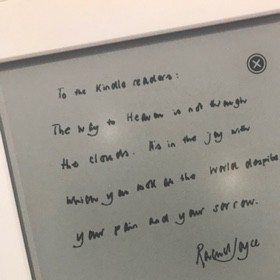 To the Kindle readers:
The way to Heaven is not through
the clouds. It is in the joy with
which you look at the world despite
your pain and your sorrow.
Rachel Joyce